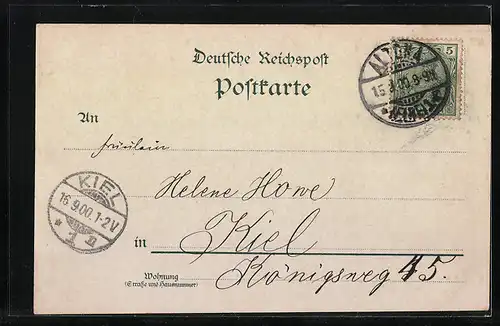 Deutsche Reichspost
Postkarte
ALTONA
15.9.00.8-9N.
5
An
Fräulein
KIEL
16.9.00.1-2V
* 1 n
Helene Howe
in Kiel
Wohnung
(Straße und Hausnummer)
Königsweg 45.